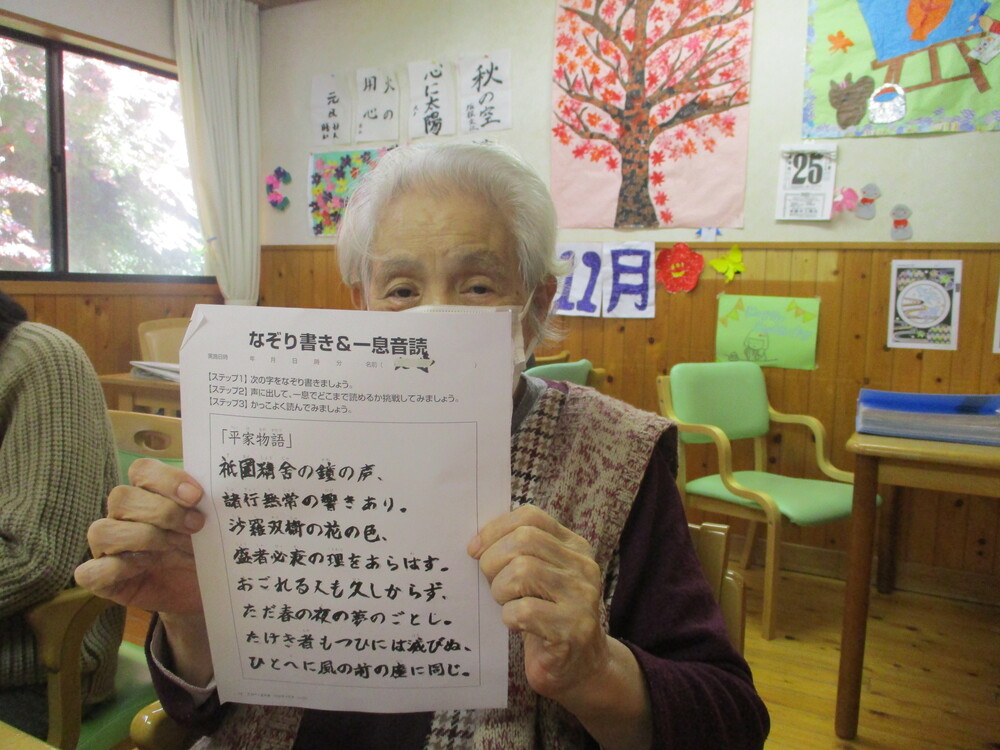 秋の空
心に太陽
火の
用心
25
11月
なぞり書き&一息音読
年 月 日 時 分 名前(
【ステップ1】次の字をなぞり書きましょう。
【ステップ2】声に出して、一息でどこまで読めるか挑戦してみましょう。
【ステップ3】かっこよく読んでみましょう。
「平家物語」
祇園精舎の鐘の声、
諸行無常の響きあり。
沙羅双樹の花の色、
盛者必衰の理をあらはす。
おごれる人も久しからず、
ただ春の夜の夢のごとし。
たけき者もつひには滅びぬ、
ひとへに風の前の塵に同じ。